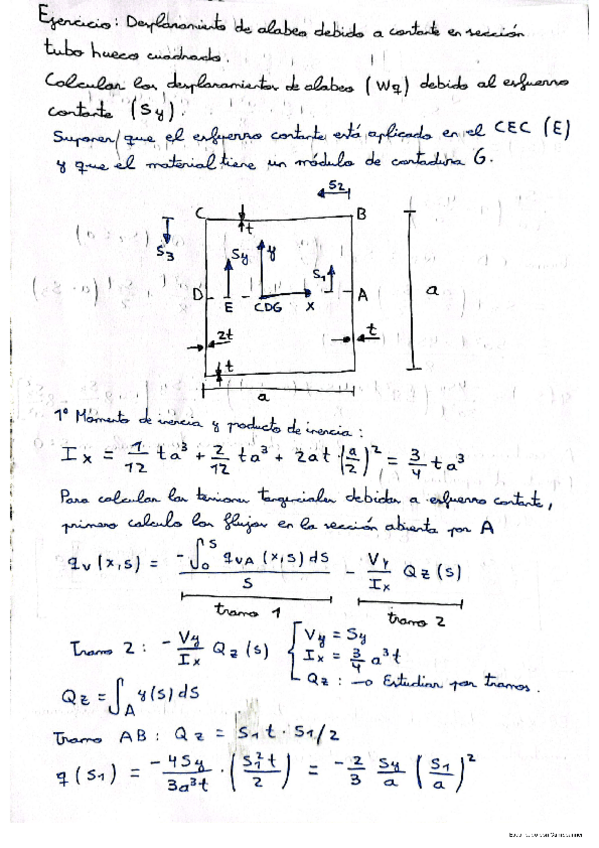 Ejercicio: Desplazamiento de alabeo debido a cortante en sección
tubo hueco cuadrado.
Calcular los desplazamientos de alabeo (Wz) debido al esfuerzo
cortante (Sy).
Suponer que el esfuerzo cortante está aplicado en el CEC (E)
y que el material tiene un módulo de cortadura G.
S2
C
B
t
S3
Sy
y
S1
a
D
E
CDG
x
A
2t
t
t
a
1º Momento de inercia y producto de inercia:
Ix = 1/12 ta³ + 2/12 ta³ + 2at·(a/2)² = 3/4 ta³
Para calcular las tensiones tangenciales debidas a esfuerzo cortante,
primero calculo los flujos en la sección abierta por A
qv(x,s) = -∫₀ˢ qvA(x,s)ds / s - Vy/Ix Qz(s)
tramo 1
tramo 2
Tramo 2: -Vy/Ix Qz(s) { Vy = Sy
Ix = 3/4 a³t
Qz: → Estudiar por tramos.
Qz = ∫A y(s)ds
Tramo AB: Qz = S1t·S1/2
q(S1) = -4Sy/3a³t · (S1²t/2) = -2/3 Sy/a (S1/a)²